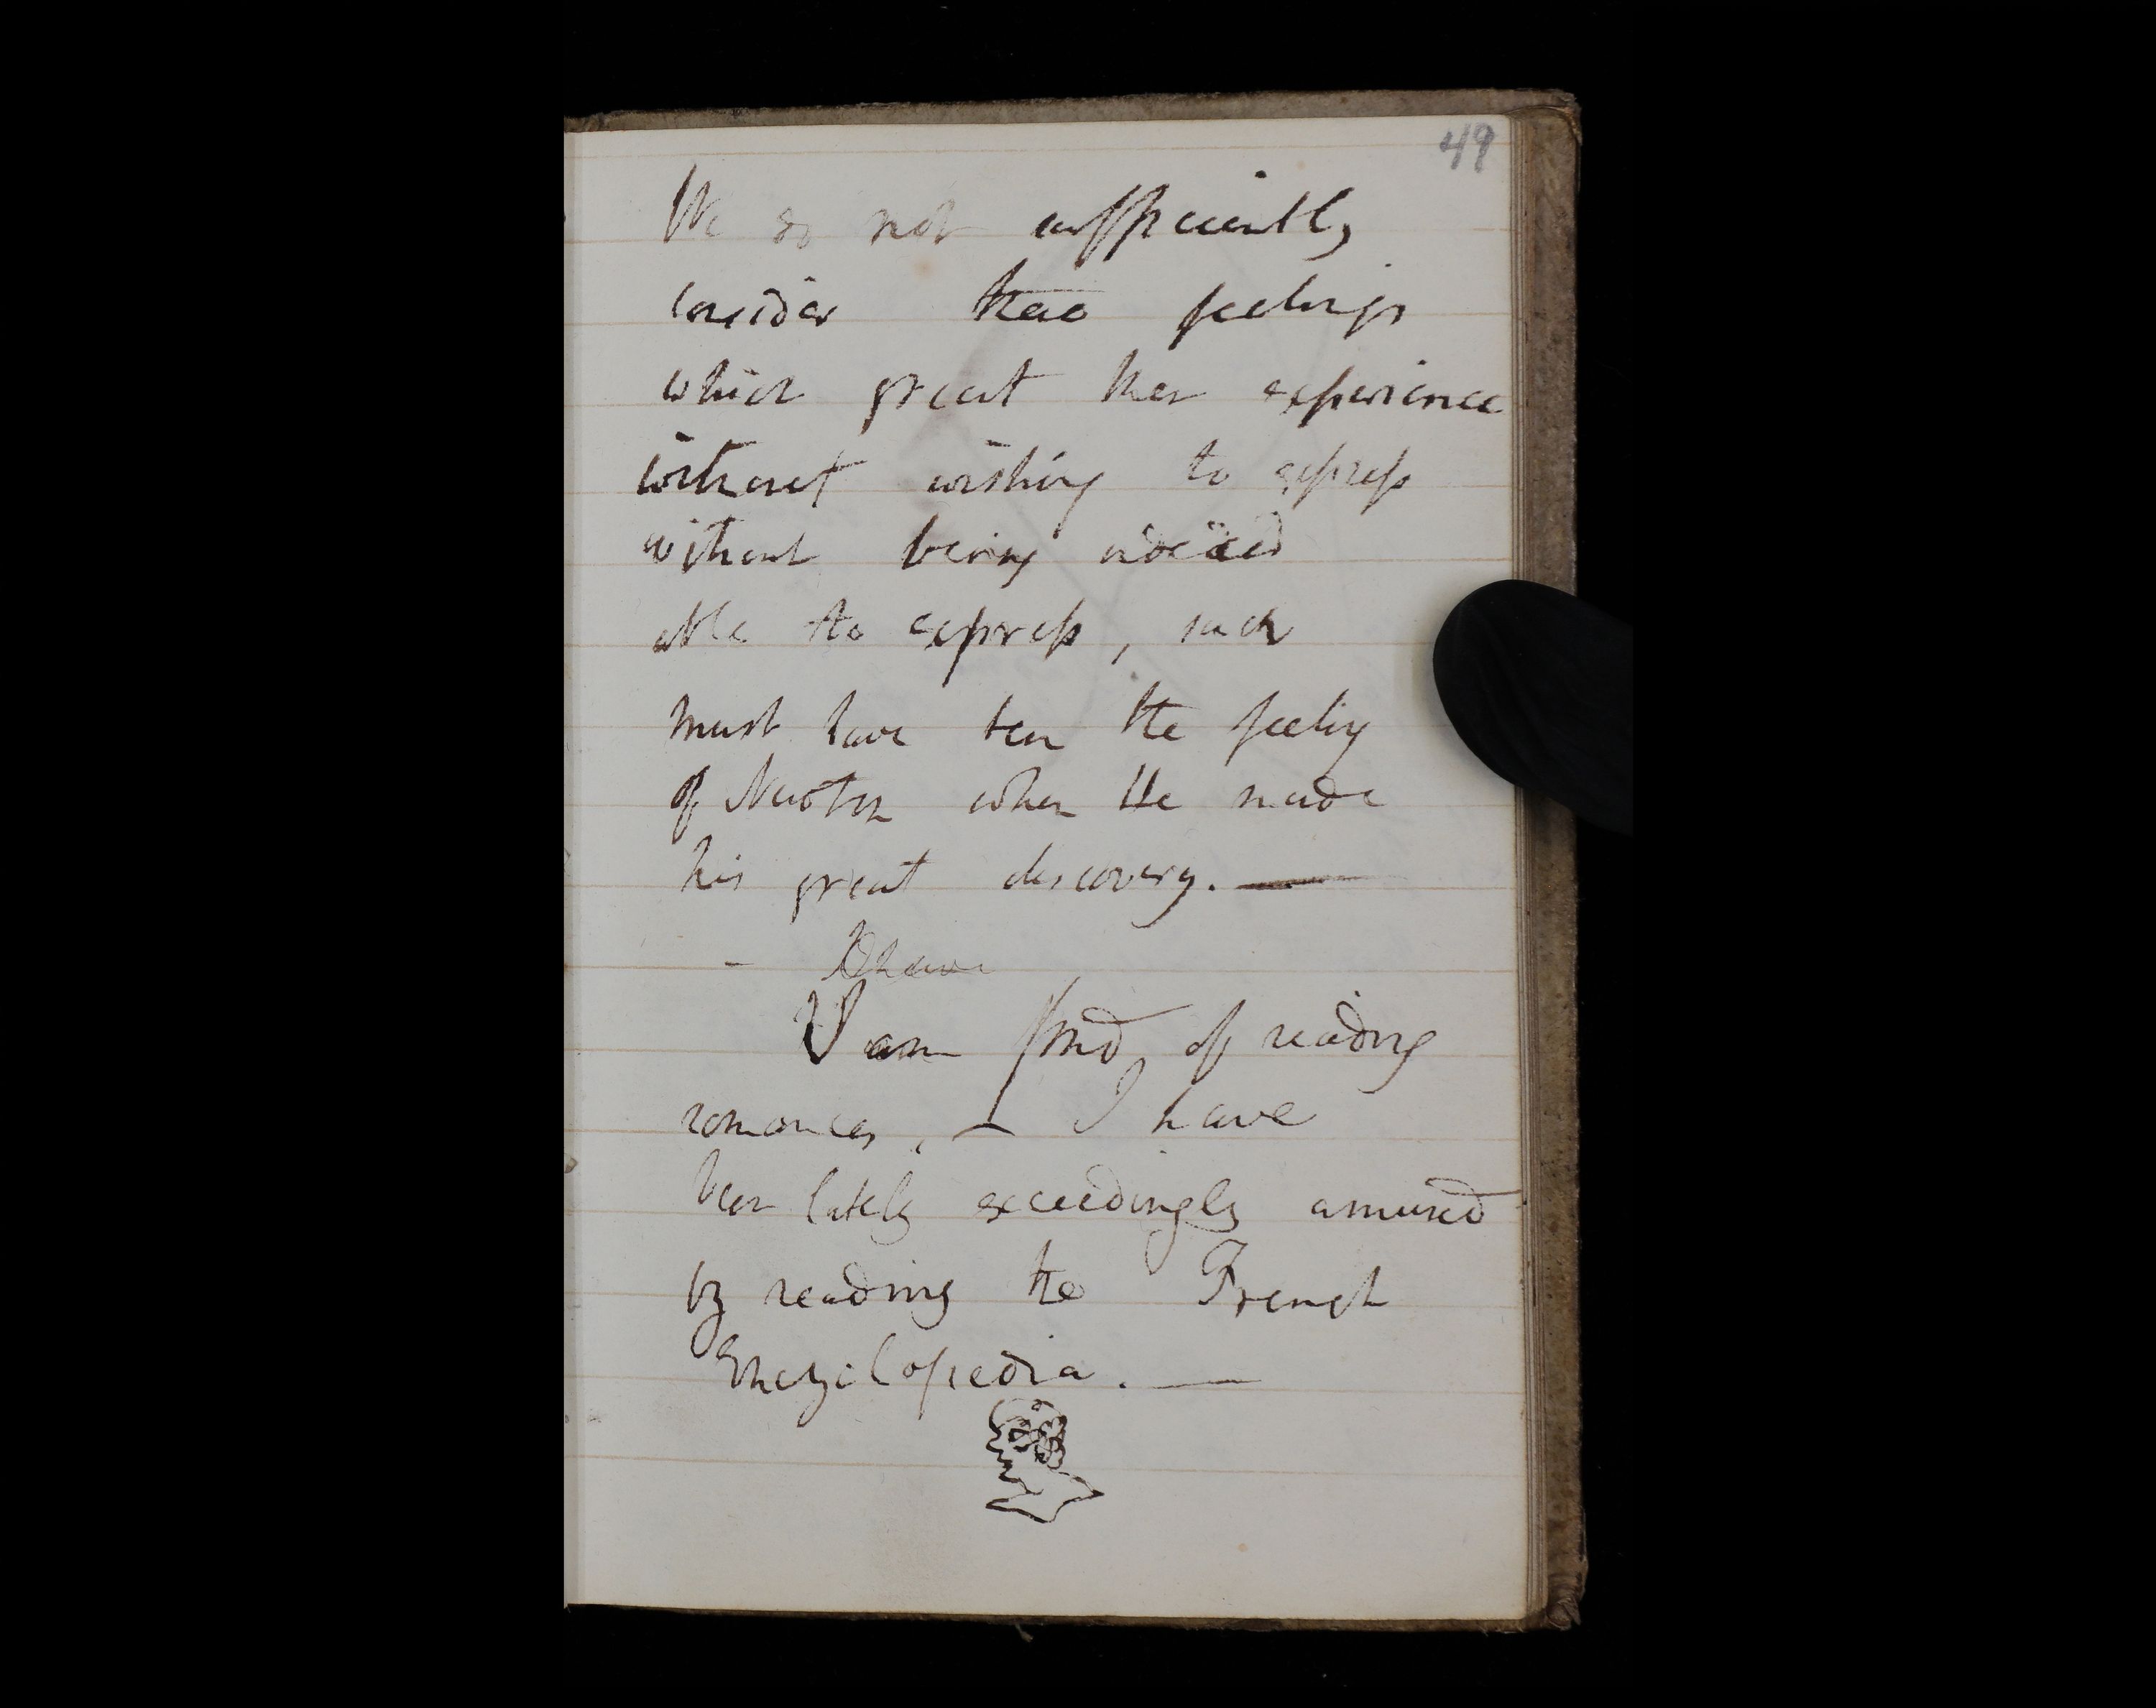 49
We do not sufficiently
consider those feelings
which great men experience
without wishing to express
without being indeed
able to express, such
must have been the feeling
of Newton when He made
his great discovery. —
I am fond of reading
romances, — I have
been lately exceedingly amused
by reading the French
Encyclopedia. —